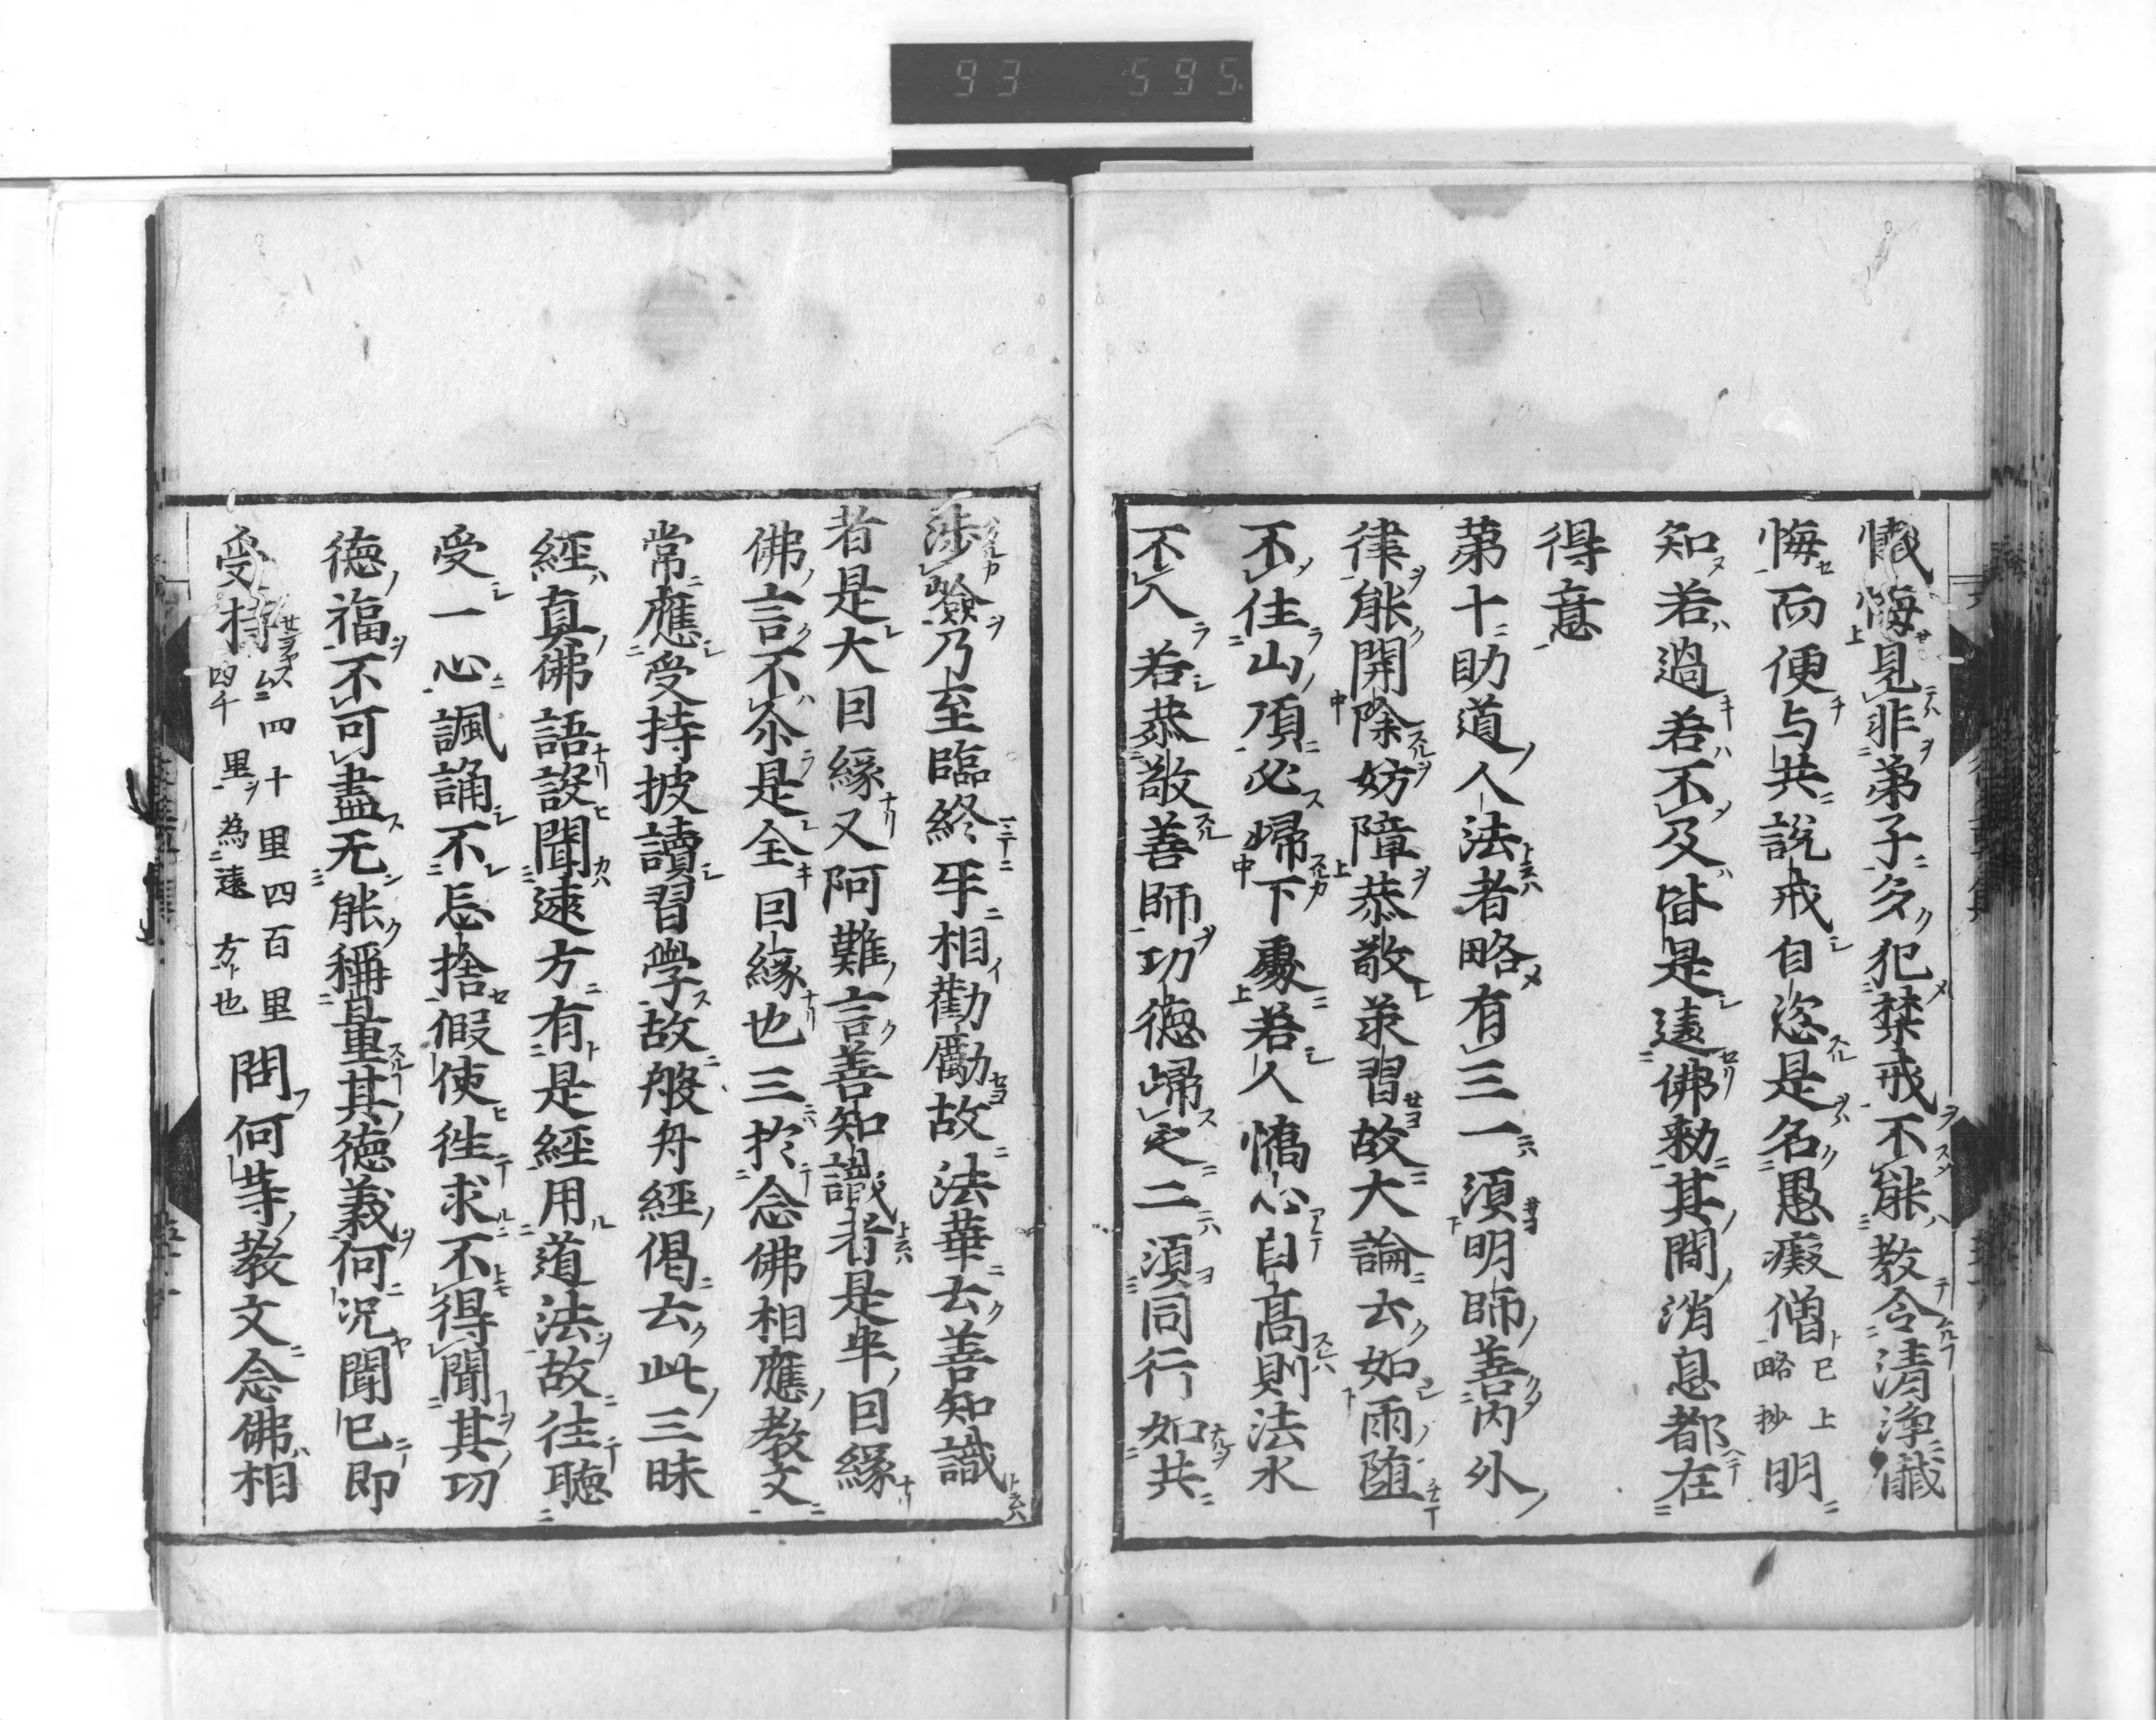 93 595
懺悔見非弟子多犯禁戒不能教令清淨懺
悔而便与共説戒自恣是名愚癡僧已上略抄明
知若過若不及皆是違佛勅其間消息都在
得意
第十助道人法者略有三一須明師善内外
律能開除妨障恭敬承習故大論云如雨堕
不住山頂必歸下處若人憍心自高則法水
不入若恭敬善師功徳歸之二須同行如共
渉嶮乃至臨終互相勸勵故法華云善知識
者是大因縁又阿難言善知識者是半因縁
佛言不尒是全因縁也三於念佛相應教文
常應受持披讀習學故般舟經偈云此三昧
經真佛語設聞遠方有是經用道法故往聴
受一心諷誦不忘捨假使往求不得聞其功
徳福不可盡无能稱量其徳義何况聞已即
受持四十里四百里四千里為遠方也問何等教文念佛相